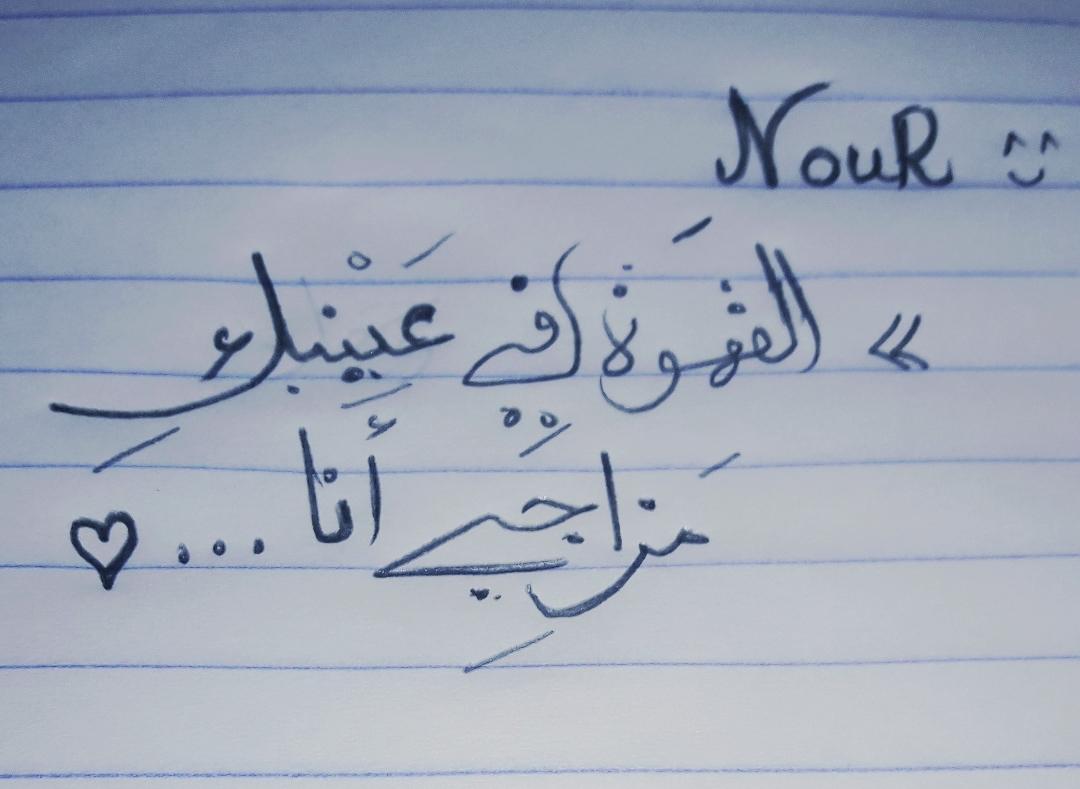 NouR
« القَهوة في عَيْنِيكِ
مَزاجِي أنا ...